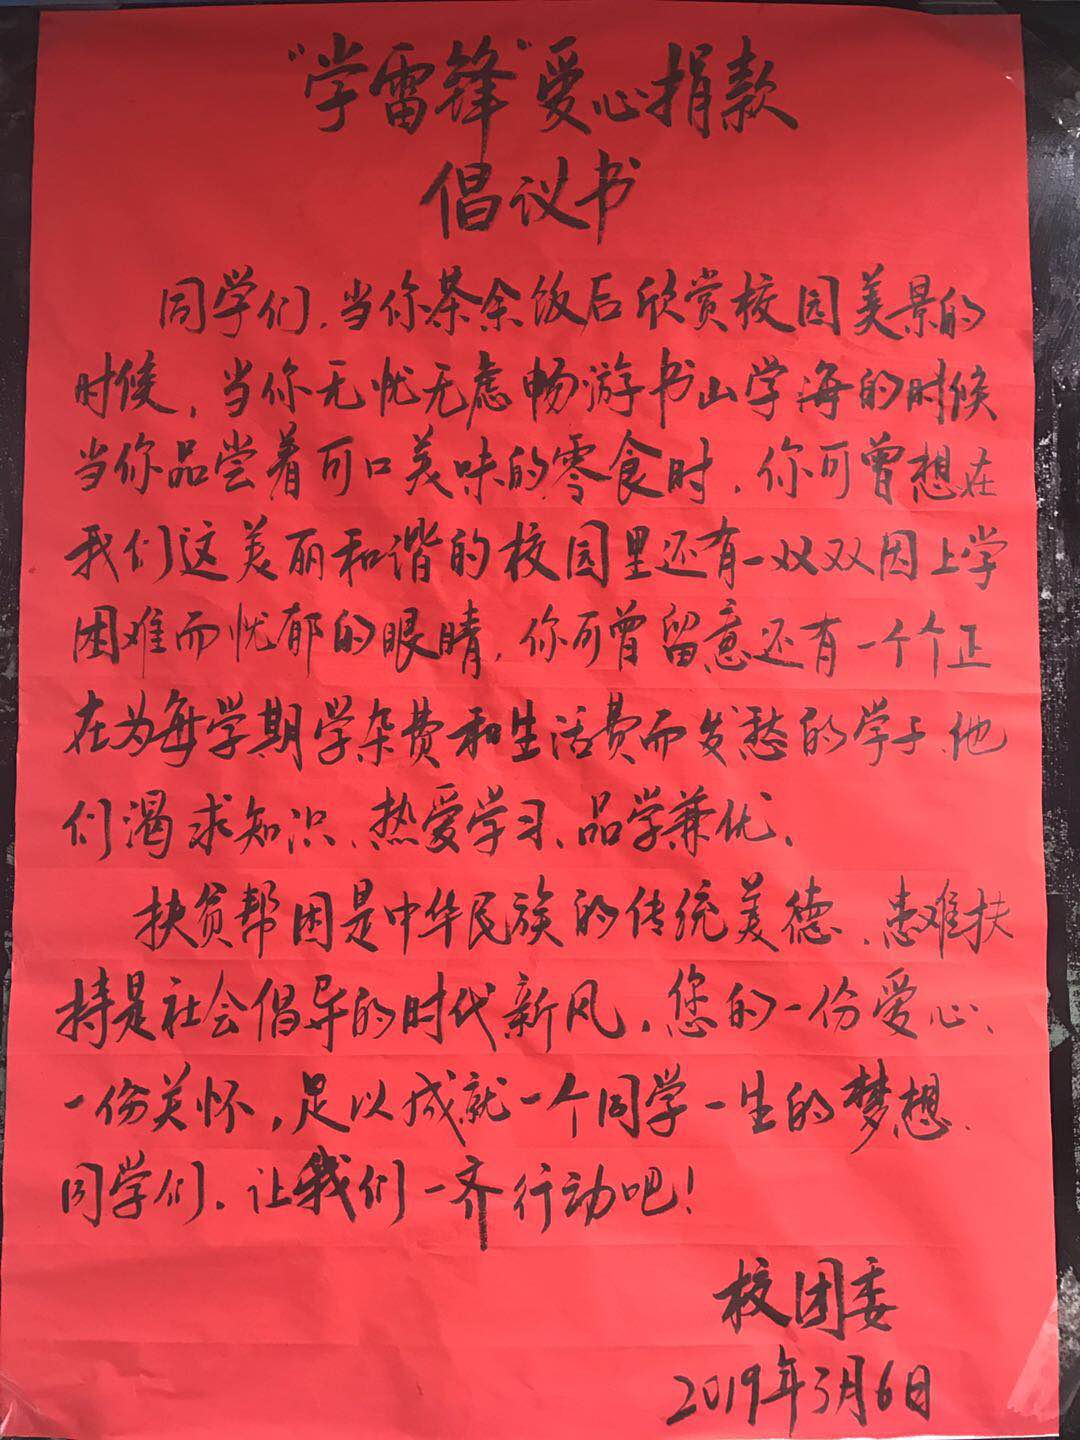 “学雷锋”爱心捐款
倡议书
同学们,当你茶余饭后欣赏校园美景的
时候,当你无忧无虑畅游书山学海的时候
当你品尝着可口美味的零食时,你可曾想在
我们这美丽和谐的校园里还有一双双因上学
困难而忧郁的眼睛,你可曾留意还有一个个正
在为每学期学杂费和生活费而发愁的学子、他
们渴求知识、热爱学习、品学兼优、
扶贫帮困是中华民族的传统美德、患难扶
持是社会倡导的时代新风,您的一份爱心、
一份关怀,足以成就一个同学一生的梦想、
同学们,让我们一齐行动吧!
校团委
2019年3月6日